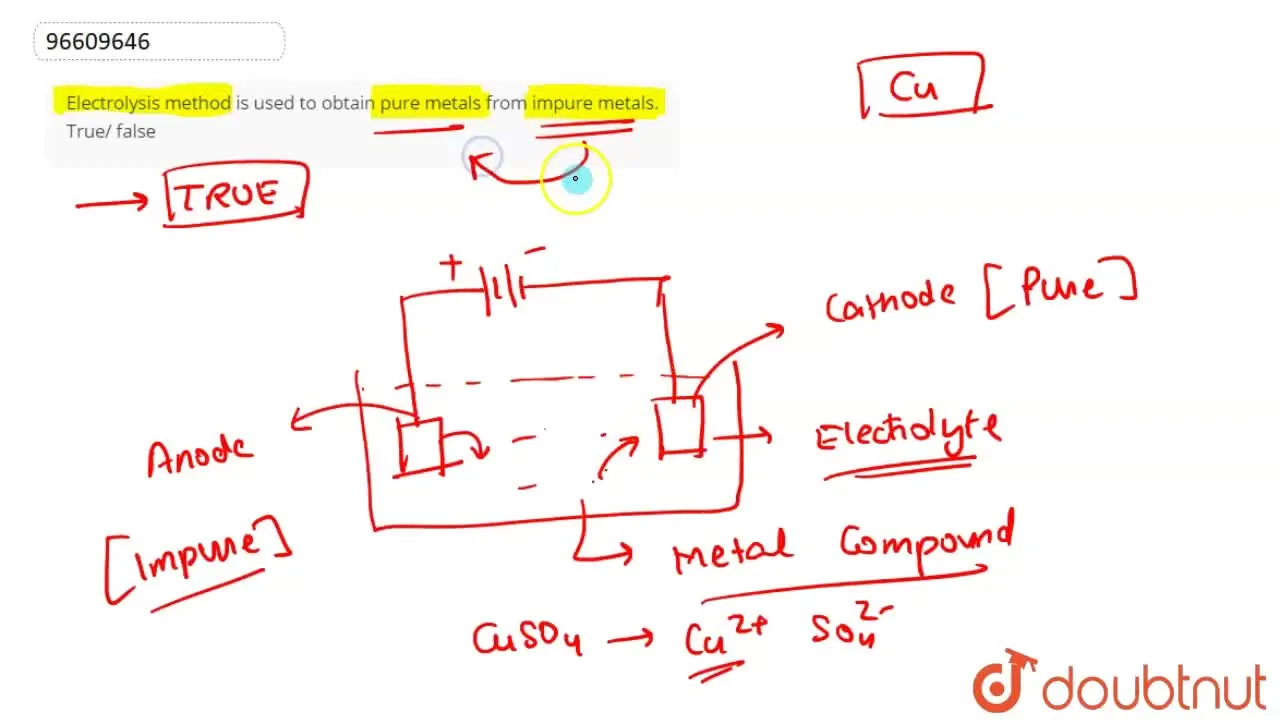 96609646
Cu
Electrolysis method is used to obtain pure metals from impure metals.
True/ false
→ TRUE
+ −
Cathode [Pure]
Anode
Electrolyte
[Impure]
Metal Compound
CuSO4 → Cu2+ SO4 2-
doubtnut